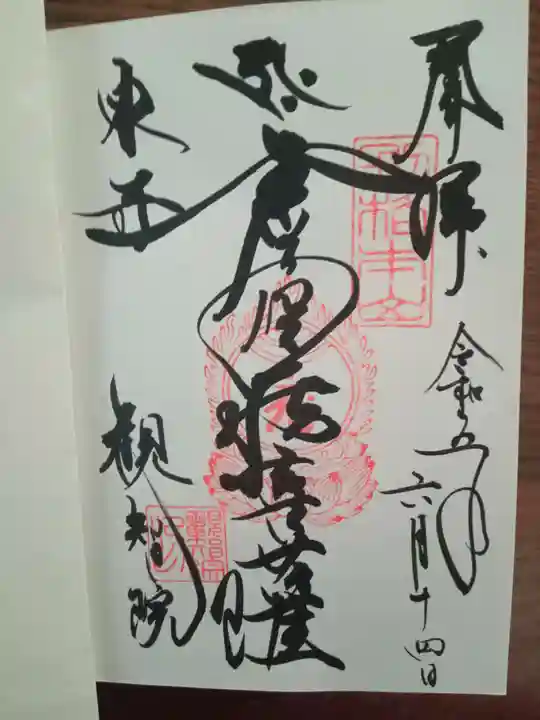 奉拝
令和五年
六月十四日
虚空蔵菩薩
東寺
観智院